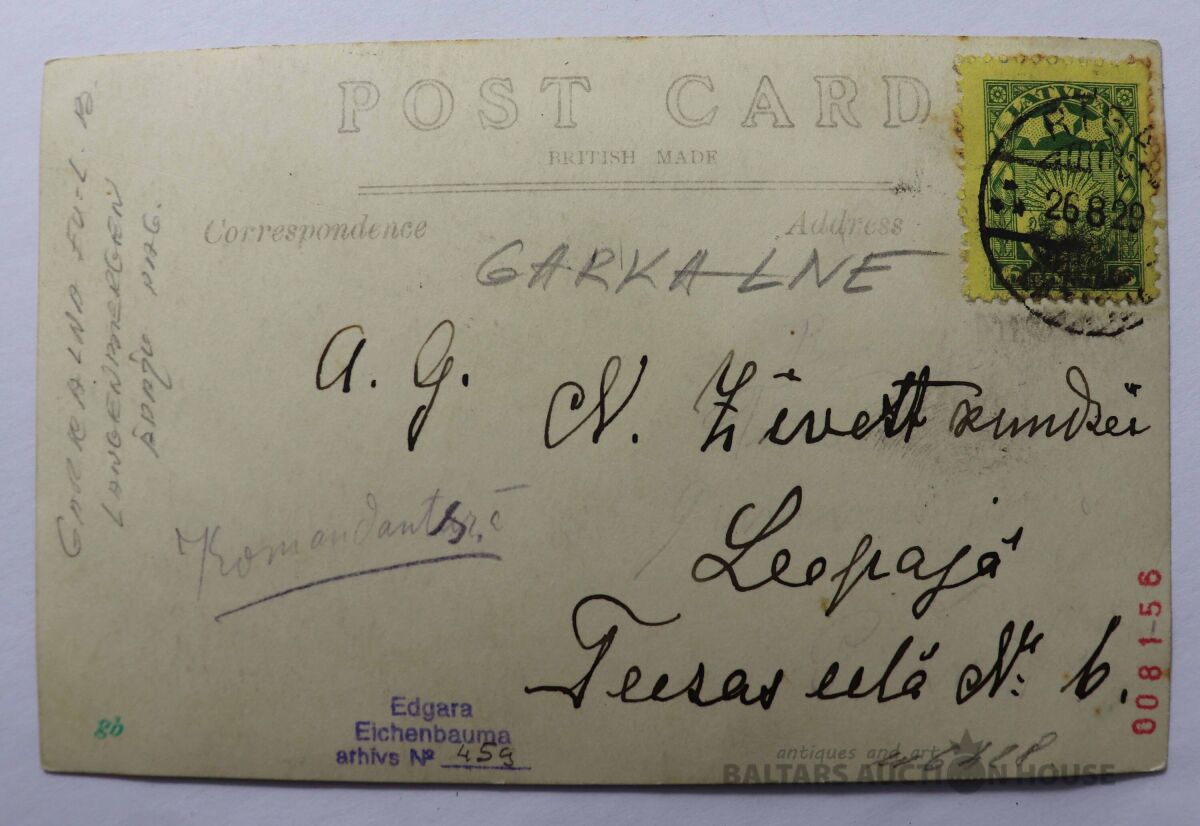 POST CARD
BRITISH MADE
Correspondence
Address
LATVIJA
RIGA
26 8 29
GARKALNE
A. G.
N. Zivett kundzei
Leepajā
Teesas eelā № 6.
Komandantūrā
LANGENBERGEN
Edgara
Eichenbauma
arhivs № 459
gb
0081-56
antiques and art
BALTARS AUCTION HOUSE